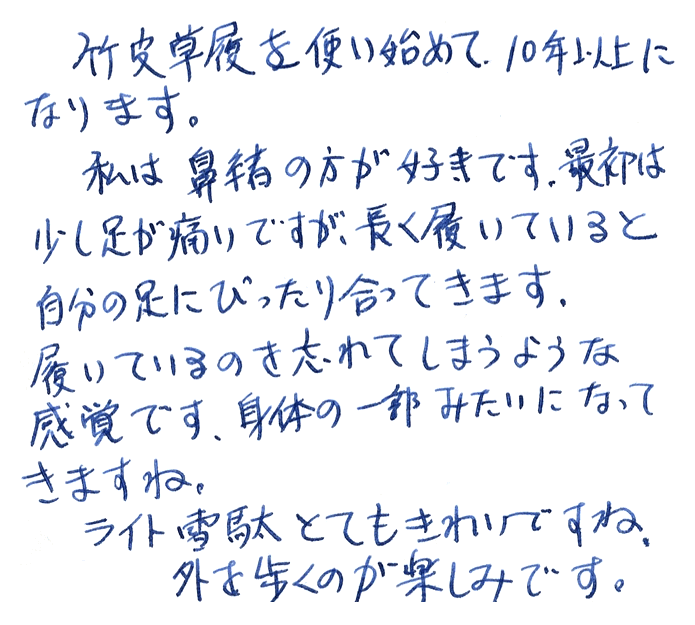 竹皮草履を使い始めて、10年以上に
なります。
私は鼻緒の方が好きです。最初は
少し足が痛いですが、長く履いていると
自分の足にぴったり合ってきます。
履いているのを忘れてしまうような
感覚です、身体の一部みたいになって
きますね。
ライト雪駄とてもきれいですね、
外を歩くのが楽しみです。